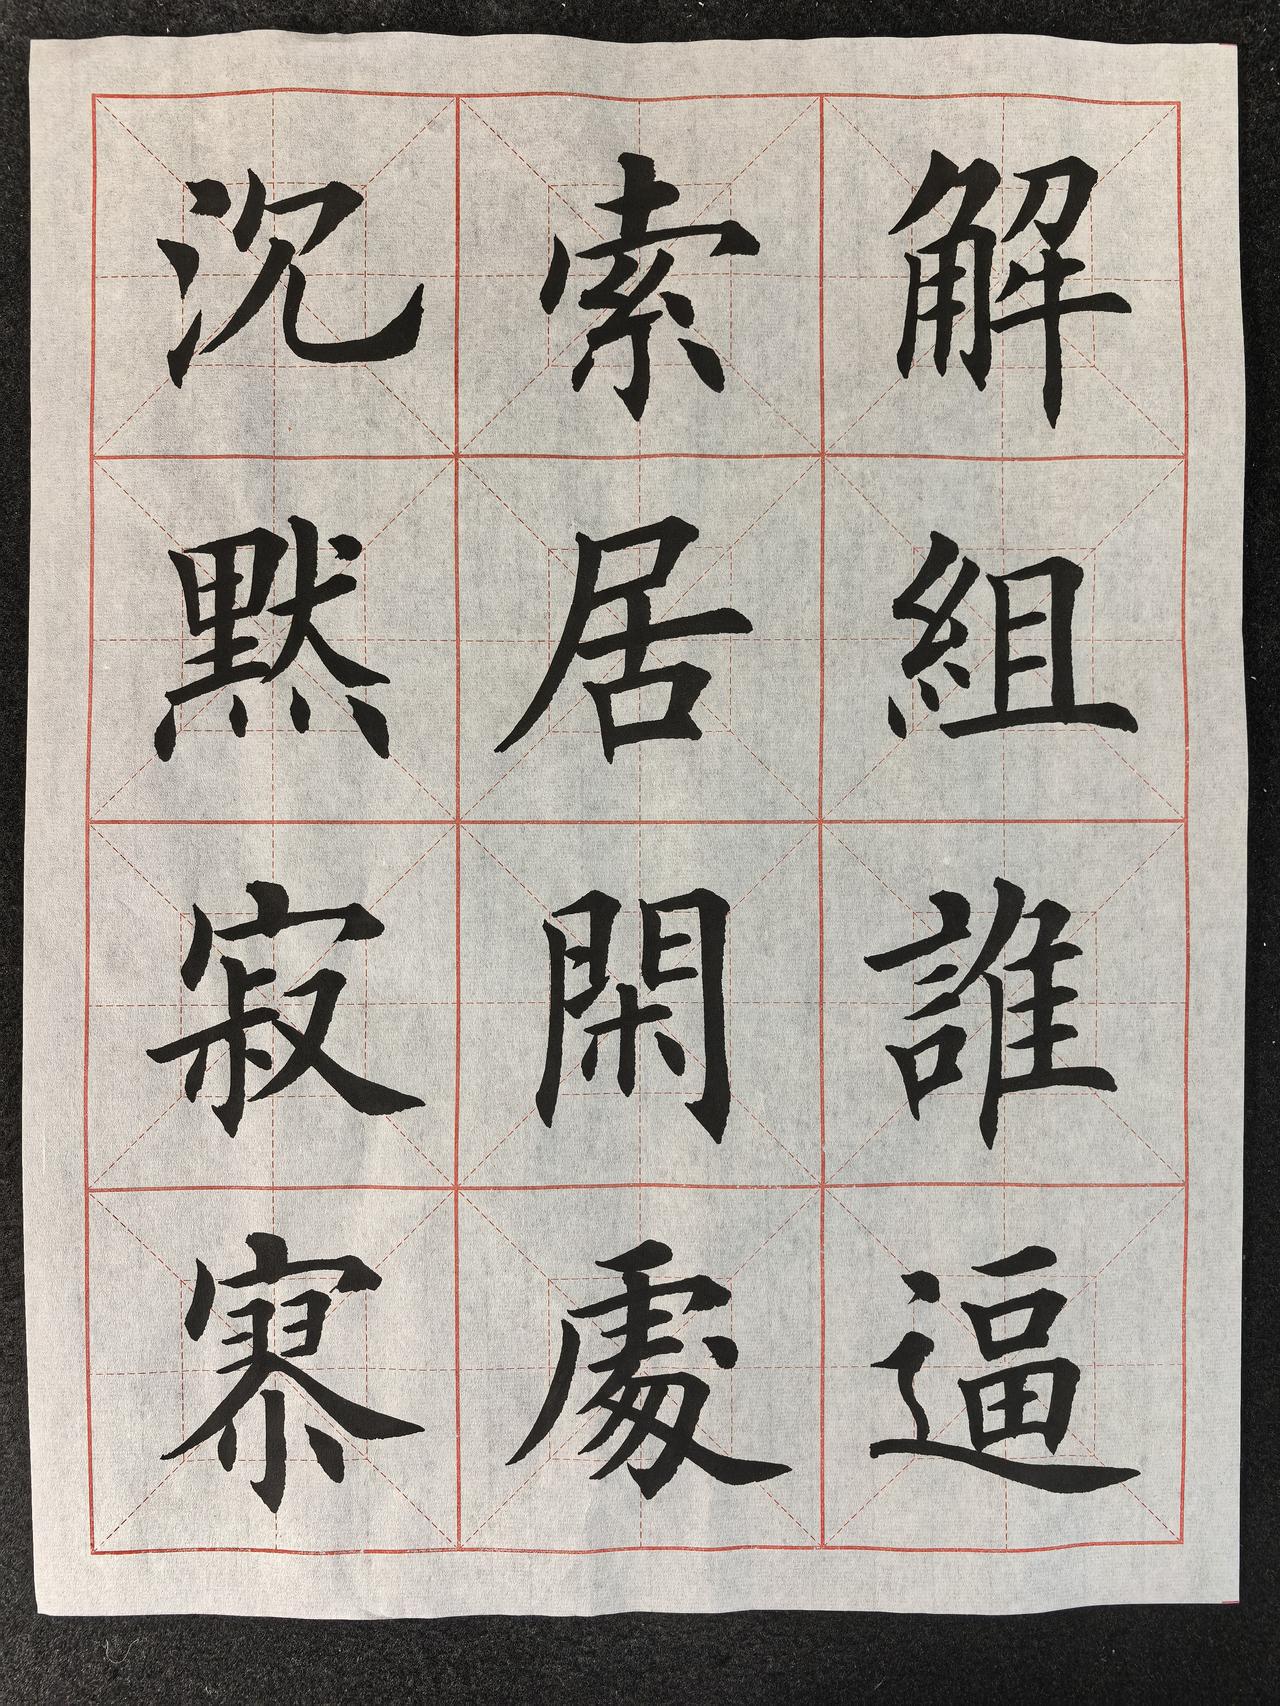 解組誰逼
索居閑處
沉默寂寥